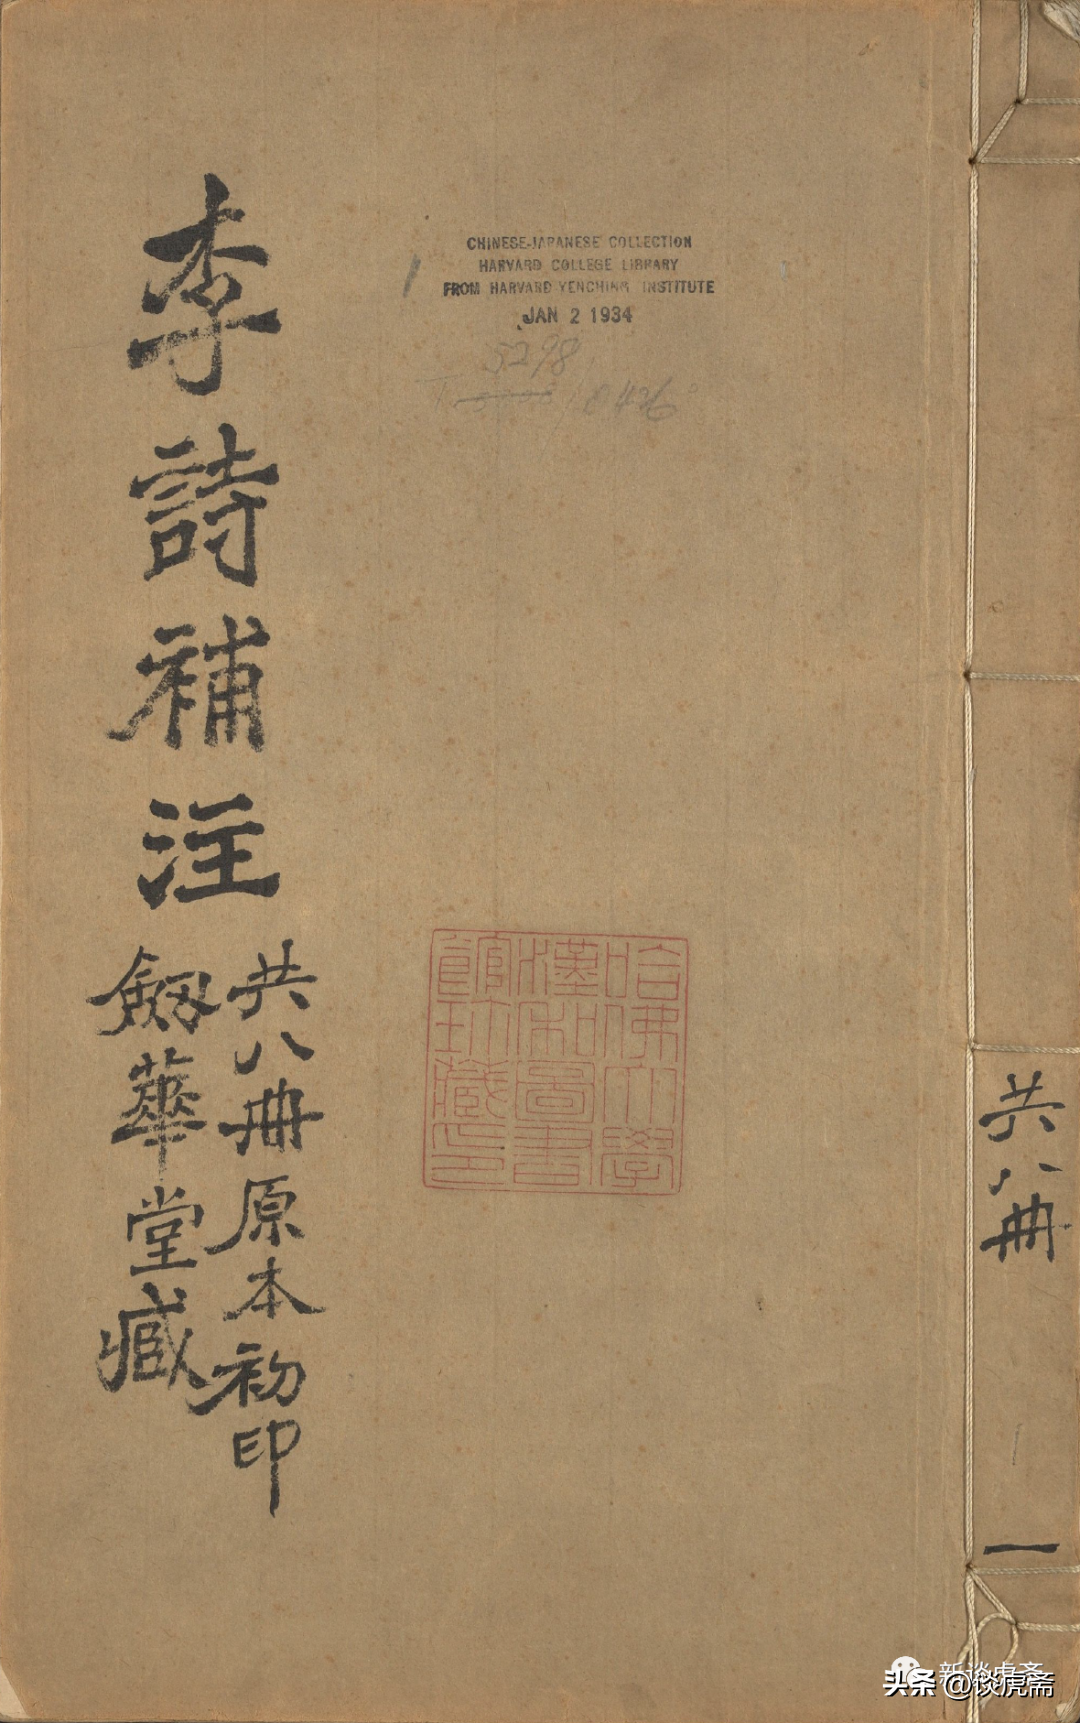 李詩補注
共八冊原本初印
劔華堂藏
CHINESE-JAPANESE COLLECTION
HARVARD COLLEGE LIBRARY
FROM HARVARD YENCHING INSTITUTE
JAN 2 1934
5298
哈佛大學
漢和圖書
館珍藏印
共八冊
一
新谈虎斋
头条 @谈虎斋